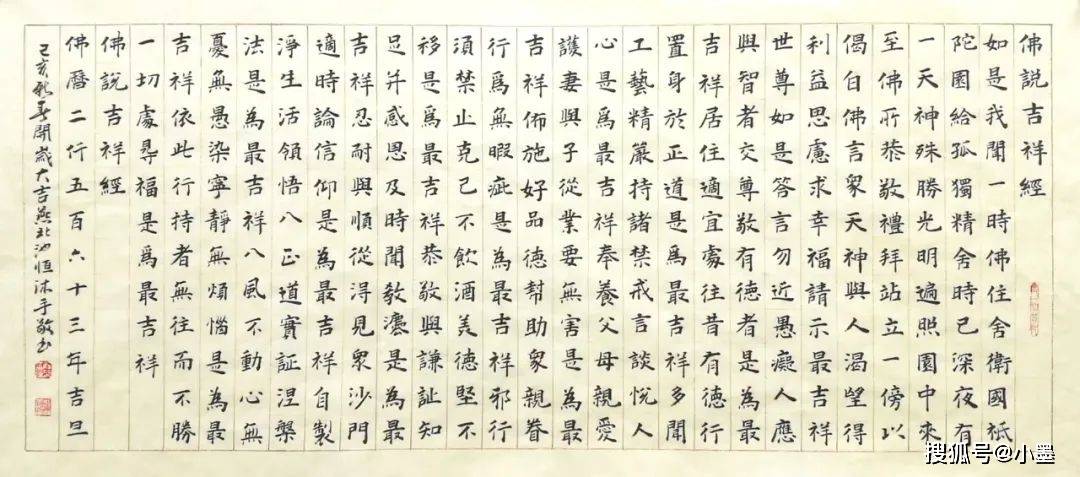 佛說吉祥經
如是我聞一時佛住舍衛國祇
陀園給孤獨精舍時已深夜有
一天神殊勝光明遍照園中來
至佛所恭敬禮拜站立一傍以
偈白佛言衆天神與人渴望得
利益思慮求幸福請示最吉祥
世尊如是答言勿近愚癡人應
與智者交尊敬有德者是為最
吉祥居住適宜處往昔有德行
置身於正道是爲最吉祥多聞
工藝精嚴持諸禁戒言談悅人
心是爲最吉祥奉養父母親愛
護妻與子從業要無害是為最
吉祥佈施好品德幫助衆親眷
行爲無瑕疵是為最吉祥邪行
須禁止克己不飲酒美德堅不
移是爲最吉祥恭敬與謙知
足并感恩及時聞教是為最
吉祥忍耐與順從淂見衆沙門
適時論信仰是為最吉祥自製
淨生活領悟八正道實証涅槃
法是為最吉祥八風不動心無
憂無愚染寧靜無煩惱是為最
吉祥依此行持者無往而不勝
一切處淂福是爲最吉祥
佛說吉祥經
佛曆二仟五百六十三年吉旦
己亥開歲大吉燕北恒沐手敬书
搜狐号@小墨